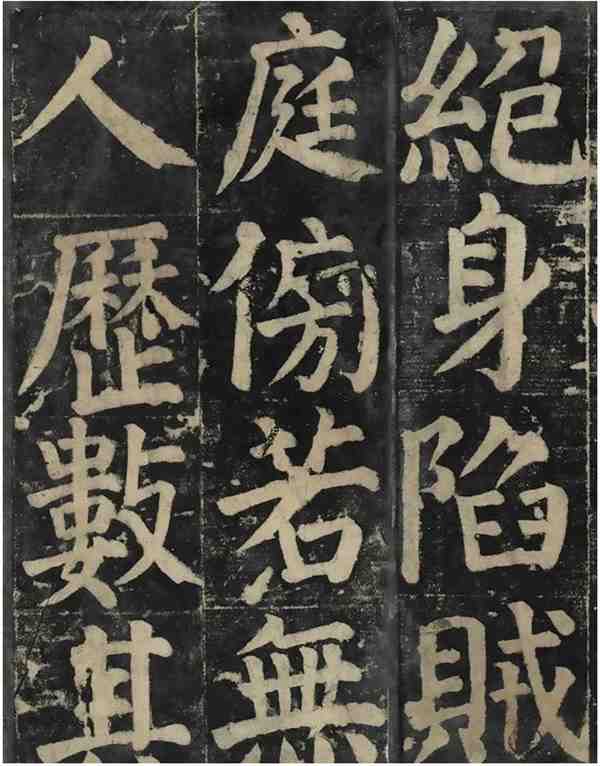 絕身陷賊
庭傍若無
人歷數其